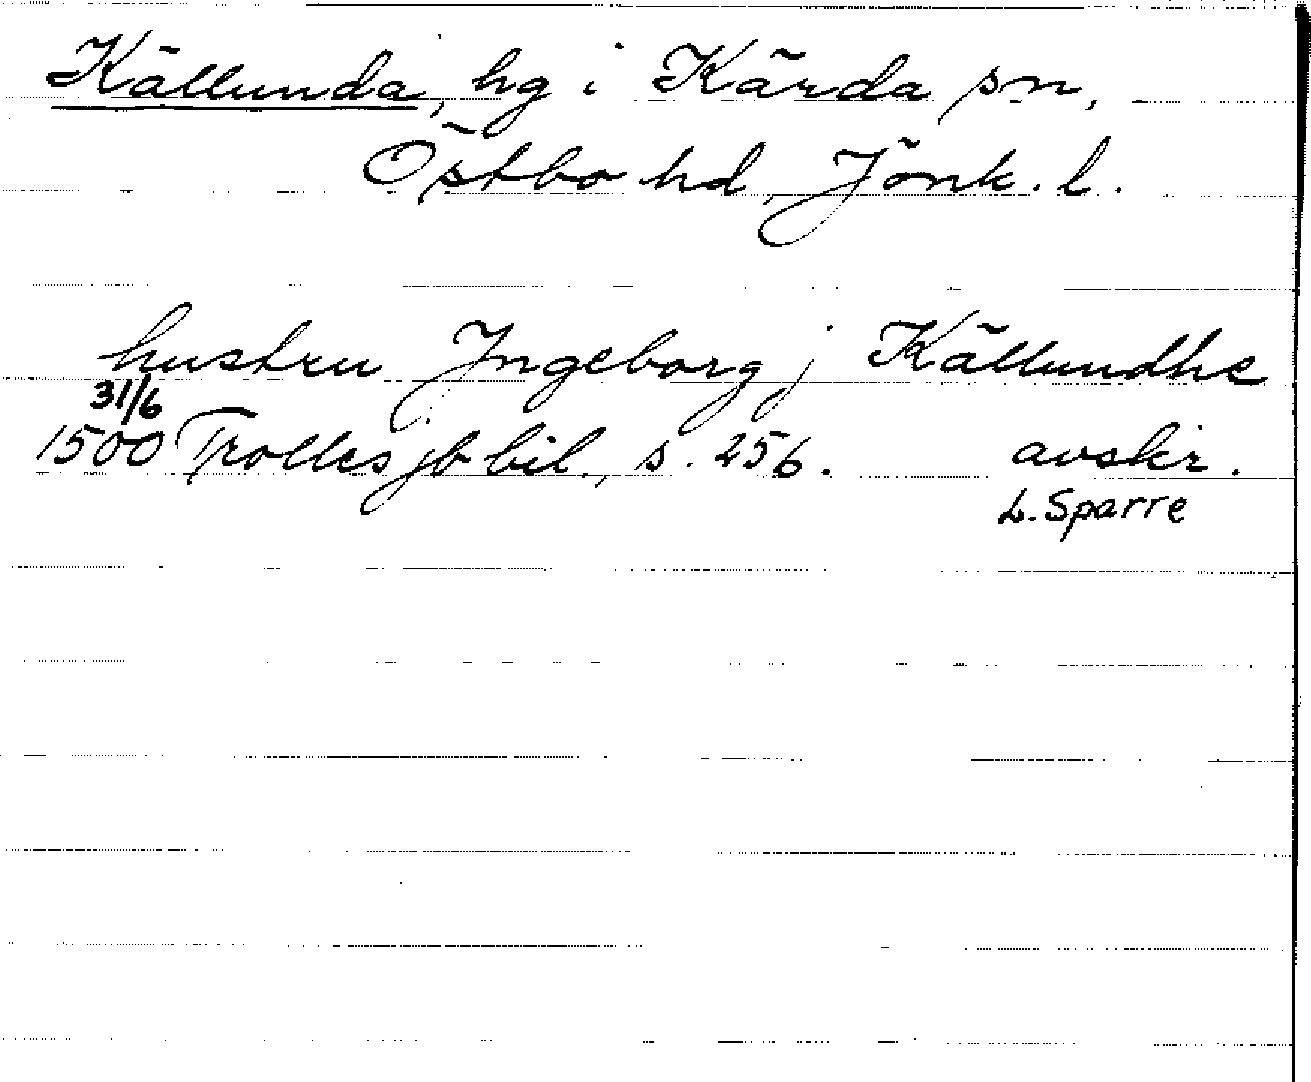 Källunda, hg i Kärda sn,
Östbo hd, Jönk. l.
hustru Ingeborg j Källundhe
31/6
1500 Trolles jb bil., s. 256. avskr.
L. Sparre